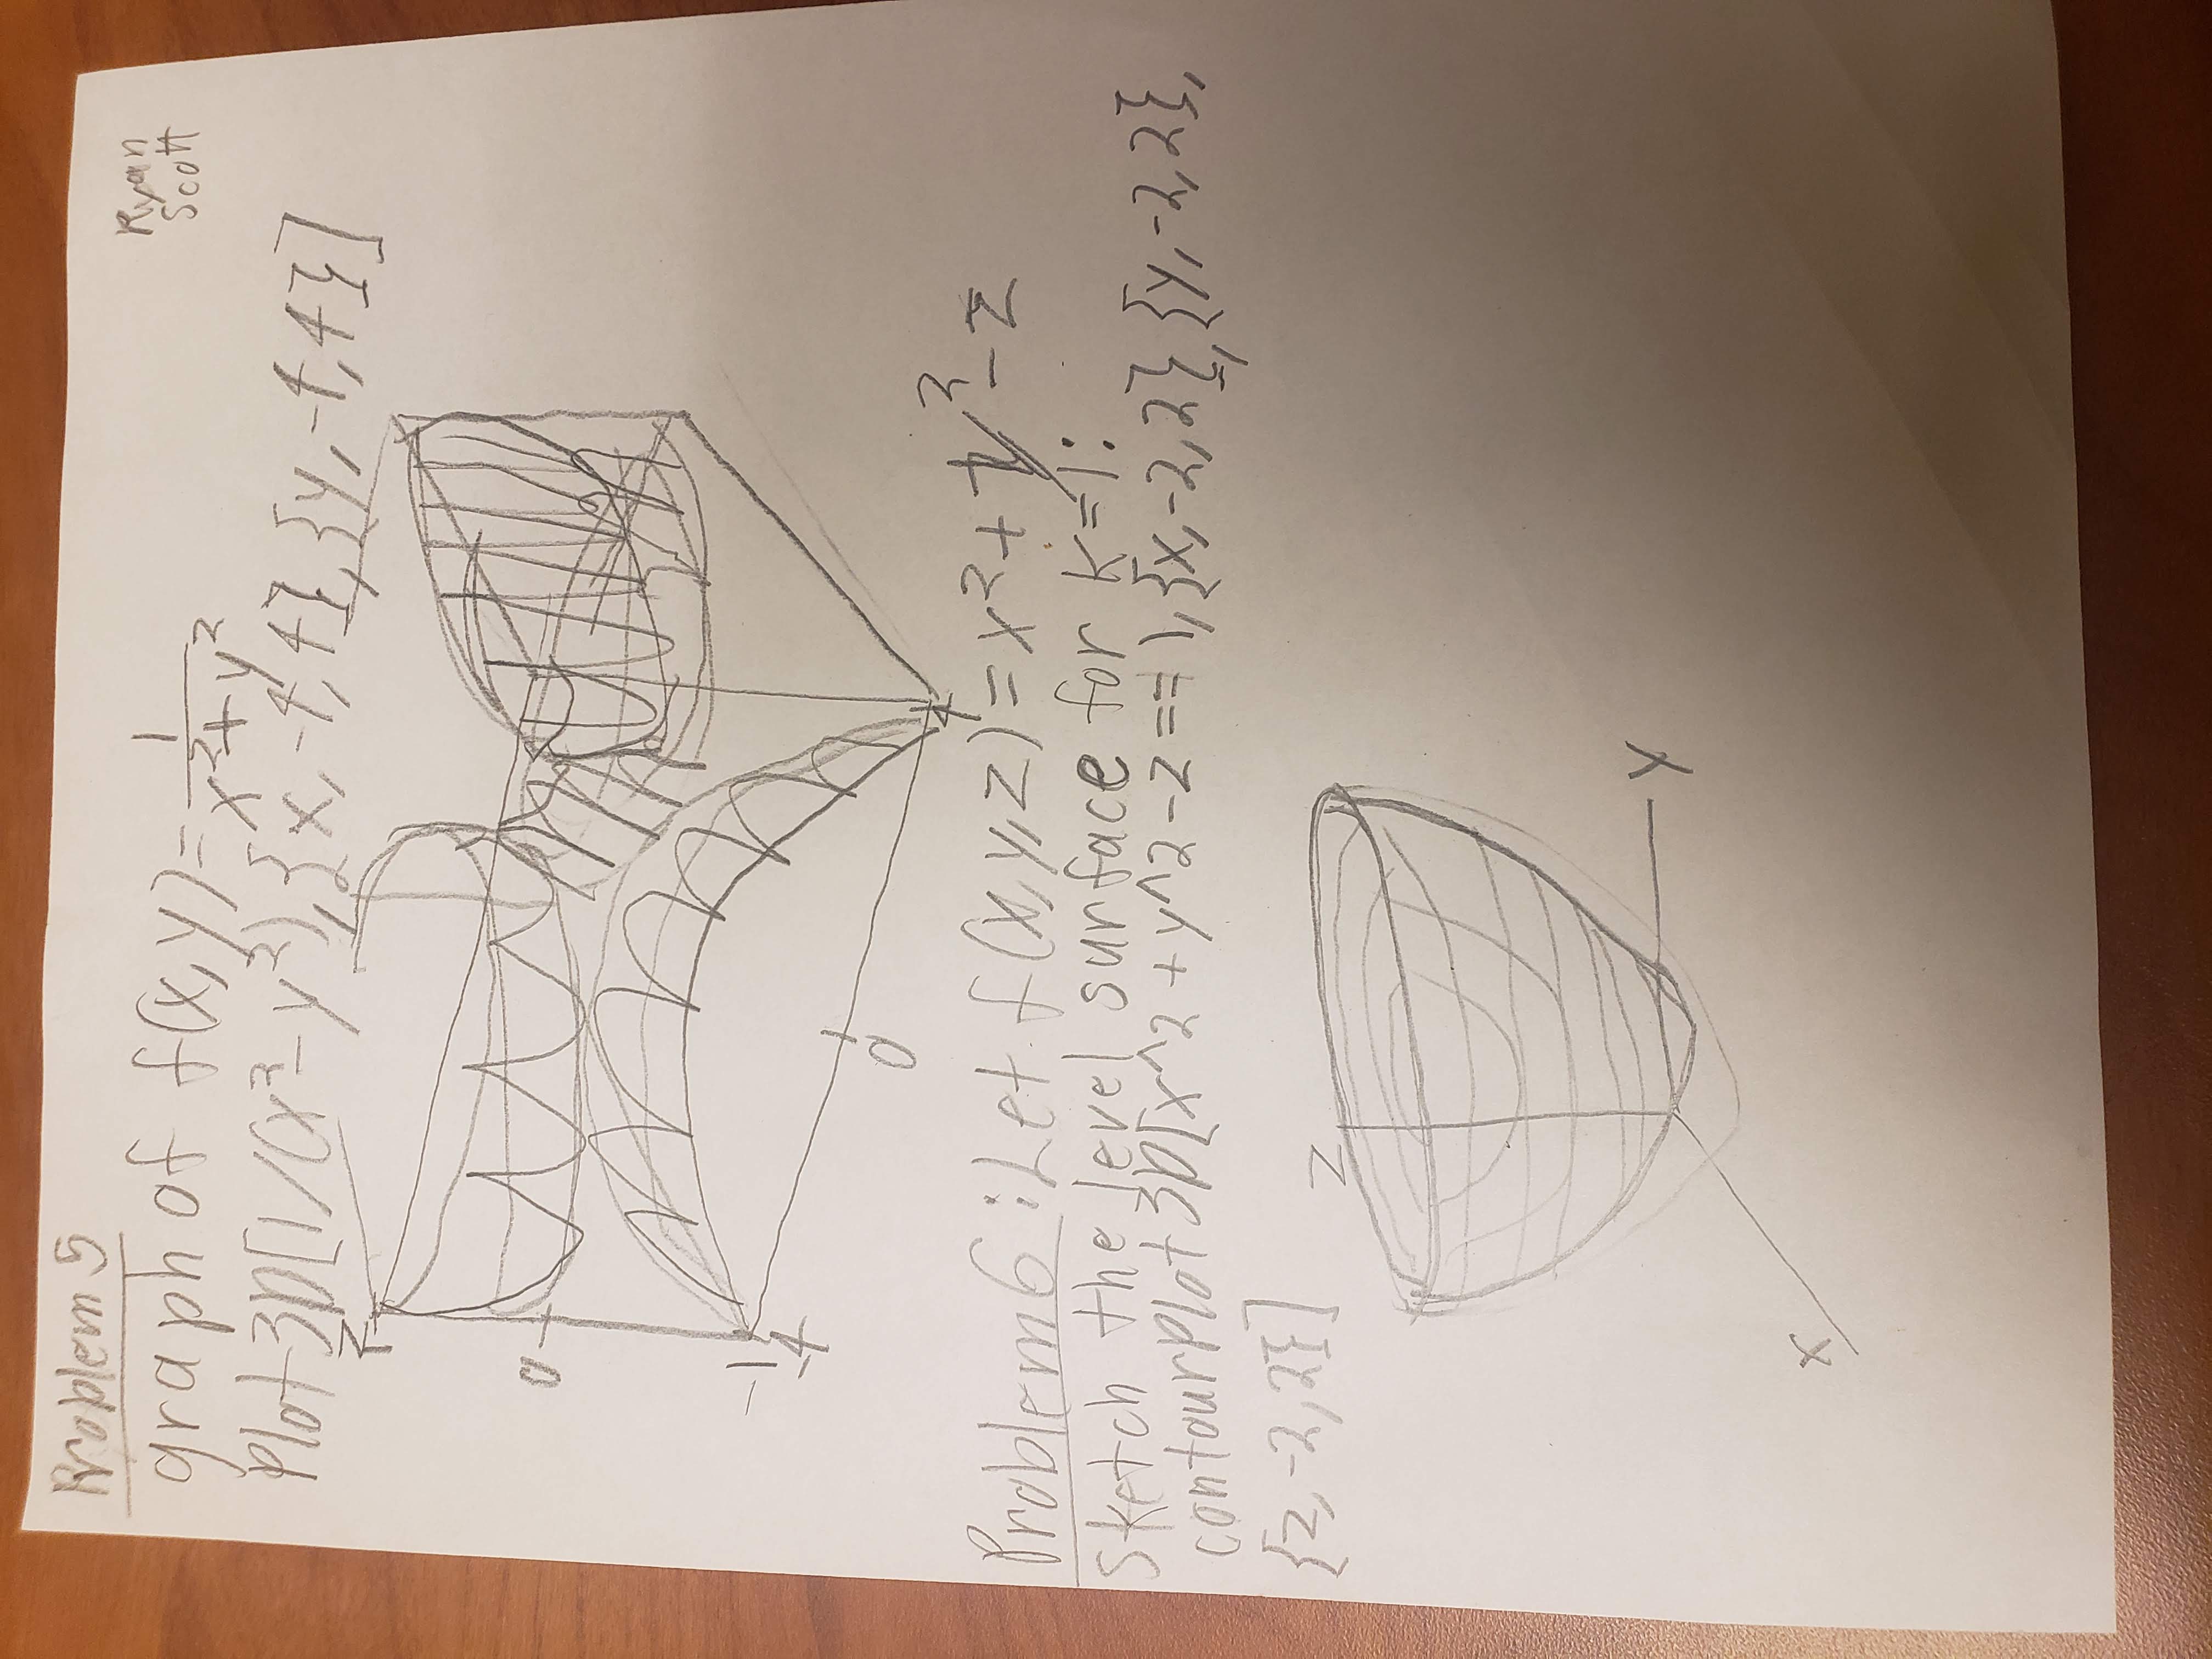 Problem 5
Ryan
Scott
graph of f(x,y)=1/(x²+y²)
Plot3D[1/(x²-y²),{x,-4,4},{y,-4,4}]
z
0
-1
-4
0
4
Problem 6: Let f(x,y,z)=x²+y²-z
sketch the level surface for k=1:
contourPlot3D[x^2+y^2-z==1,{x,-2,2},{y,-2,2},
{z,-2,2}]
z
y
x